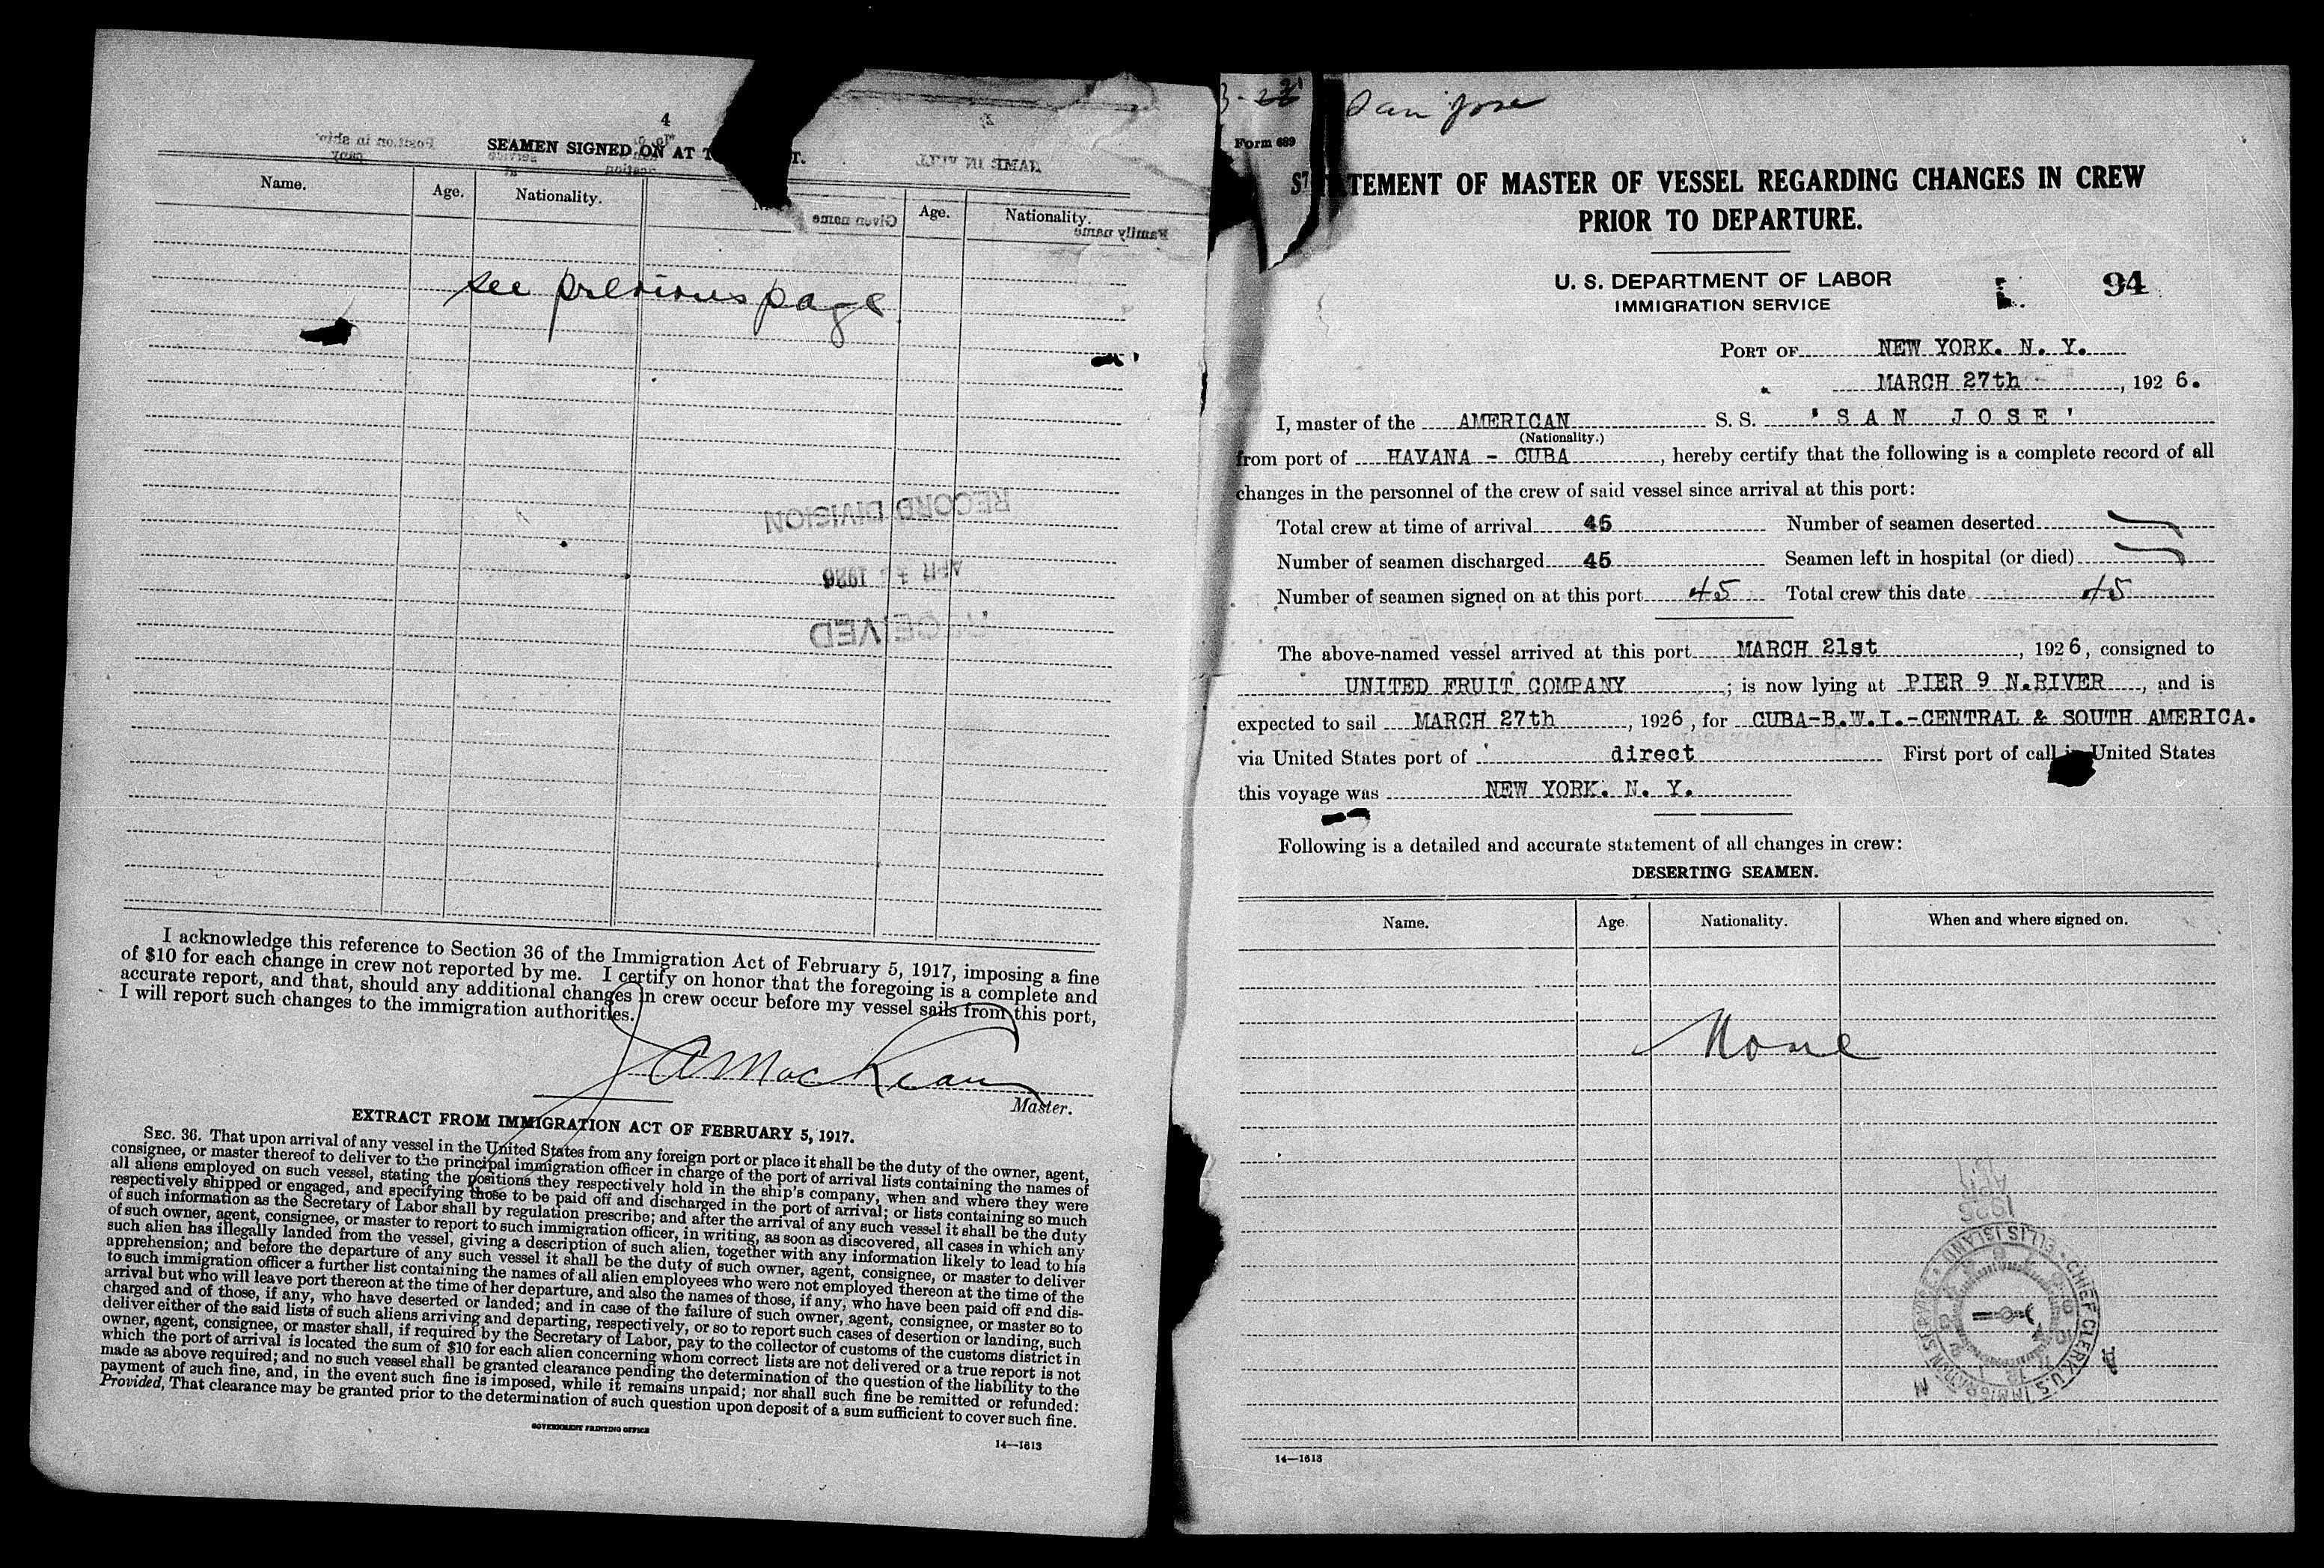 4
SEAMEN SIGNED ON AT T T.
Name. Age. Nationality. Age. Nationality.
see previous page
RECORD DIVISION
APR 1926
I acknowledge this reference to Section 36 of the Immigration Act of February 5, 1917, imposing a fine
of $10 for each change in crew not reported by me. I certify on honor that the foregoing is a complete and
accurate report, and that, should any additional changes in crew occur before my vessel sails from this port,
I will report such changes to the immigration authorities.
J A MacKean
Master.
EXTRACT FROM IMMIGRATION ACT OF FEBRUARY 5, 1917.
SEC. 36. That upon arrival of any vessel in the United States from any foreign port or place it shall be the duty of the owner, agent,
consignee, or master thereof to deliver to the principal immigration officer in charge of the port of arrival lists containing the names of
all aliens employed on such vessel, stating the positions they respectively hold in the ship's company, when and where they were
respectively shipped or engaged, and specifying those to be paid off and discharged in the port of arrival; or lists containing so much
of such information as the Secretary of Labor shall by regulation prescribe; and after the arrival of any such vessel it shall be the duty
of such owner, agent, consignee, or master to report to such immigration officer, in writing, as soon as discovered, all cases in which any
such alien has illegally landed from the vessel, giving a description of such alien, together with any information likely to lead to his
apprehension; and before the departure of any such vessel it shall be the duty of such owner, agent, consignee, or master to deliver
to such immigration officer a further list containing the names of all alien employees who were not employed thereon at the time of the
arrival but who will leave port thereon at the time of her departure, and also the names of those, if any, who have been paid off and dis-
charged and of those, if any, who have deserted or landed; and in case of the failure of such owner, agent, consignee, or master so to
deliver either of the said lists of such aliens arriving and departing, respectively, or so to report such cases of desertion or landing, such
owner, agent, consignee, or master shall, if required by the Secretary of Labor, pay to the collector of customs of the customs district in
which the port of arrival is located the sum of $10 for each alien concerning whom correct lists are not delivered or a true report is not
made as above required; and no such vessel shall be granted clearance pending the determination of the question of the liability to the
payment of such fine, and, in the event such fine is imposed, while it remains unpaid; nor shall such fine be remitted or refunded:
Provided, That clearance may be granted prior to the determination of such question upon deposit of a sum sufficient to cover such fine.
GOVERNMENT PRINTING OFFICE
14—1613
San Jose
Form 689
STATEMENT OF MASTER OF VESSEL REGARDING CHANGES IN CREW
PRIOR TO DEPARTURE.
U. S. DEPARTMENT OF LABOR
IMMIGRATION SERVICE
94
PORT OF NEW YORK. N. Y.
MARCH 27th, 1926.
I, master of the AMERICAN S. S. 'SAN JOSE'
(Nationality.)
from port of HAVANA - CUBA, hereby certify that the following is a complete record of all
changes in the personnel of the crew of said vessel since arrival at this port:
Total crew at time of arrival 45 Number of seamen deserted
Number of seamen discharged 45 Seamen left in hospital (or died)
Number of seamen signed on at this port 45 Total crew this date 45
The above-named vessel arrived at this port MARCH 21st, 1926, consigned to
UNITED FRUIT COMPANY; is now lying at PIER 9 N.RIVER, and is
expected to sail MARCH 27th, 1926, for CUBA-B.W.I.-CENTRAL & SOUTH AMERICA.
via United States port of direct First port of call in United States
this voyage was NEW YORK. N. Y.
Following is a detailed and accurate statement of all changes in crew:
DESERTING SEAMEN.
Name. Age. Nationality. When and where signed on.
None
CHIEF CLERK, U.S. IMMIGRATION SERVICE • ELLIS ISLAND
14—1613